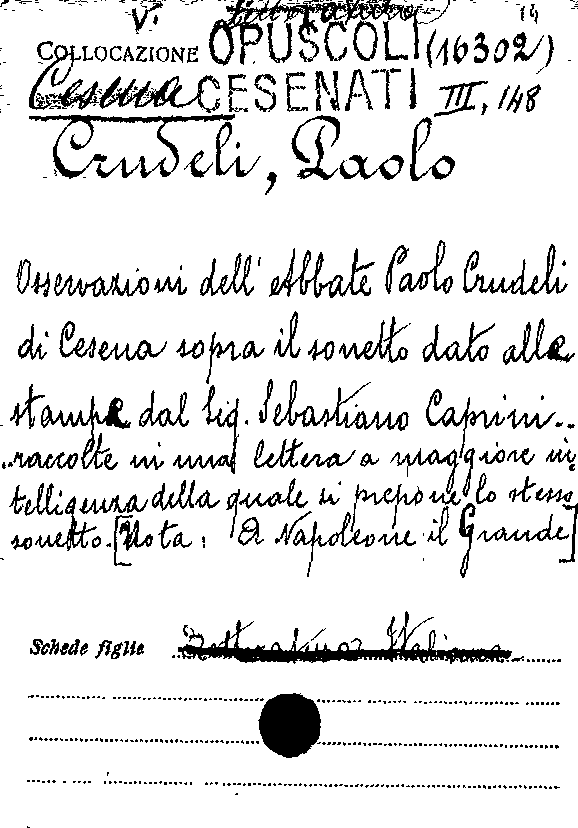 V.
14
COLLOCAZIONE OPUSCOLI (16302)
Cesena CESENATI III, 148
Crudeli, Paolo
Osservazioni dell' Abbate Paolo Crudeli
di Cesena sopra il sonetto dato alle
stampe dal Sig. Sebastiano Caprini..
..raccolte in una lettera a maggiore in-
telligenza della quale si prepone lo stesso
sonetto. [Nota: A Napoleone il Grande]
Schede figlie Letteratura Italiana